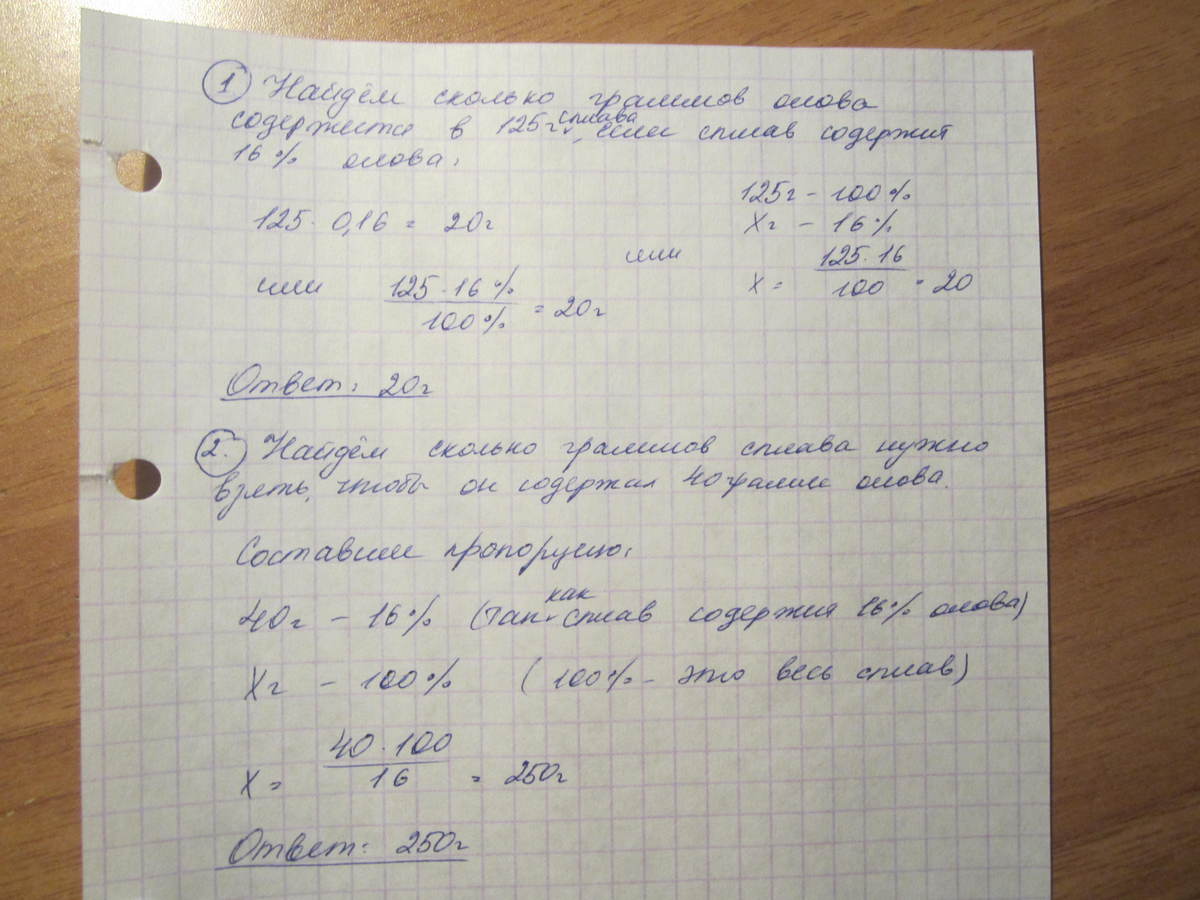 1 Найдём сколько граммов олова
содержится в 125г сплава, если сплав содержит
16% олова:
125 · 0,16 = 20г
или 125·16% / 100% = 20г
или
125г – 100%
Xг – 16%
X = 125·16 / 100 = 20
Ответ: 20г
2. Найдём сколько граммов сплава нужно
взять, чтобы он содержал 40 грамм олова.
Составим пропорцию:
40г – 16% (так как сплав содержит 16% олова)
Xг – 100% (100% – это весь сплав)
X = 40·100 / 16 = 250г
Ответ: 250г